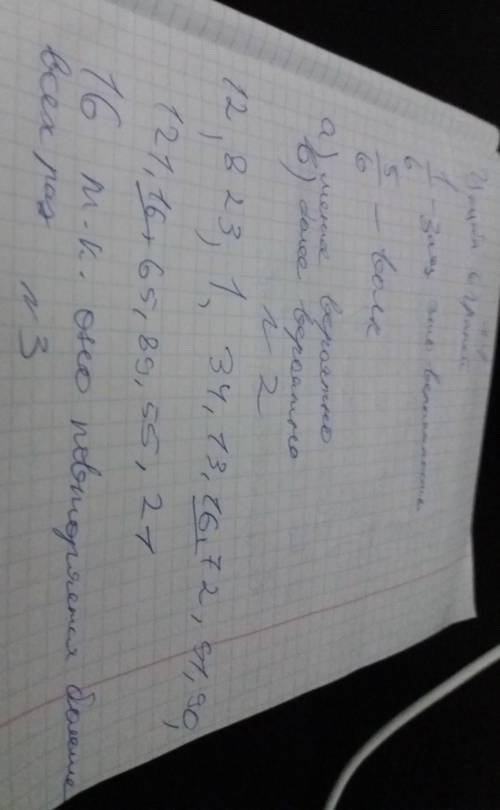 6 грани
1/6 - заяц
5/6 - волк
а) менее вероятно
в) более вероятно
N 2
12, 823, 1, 34, 13, 16, 72, 91, 90,
121, 16, 65, 89, 55, 21
16 т.к. оно повторяется больше
всех раз
N 3